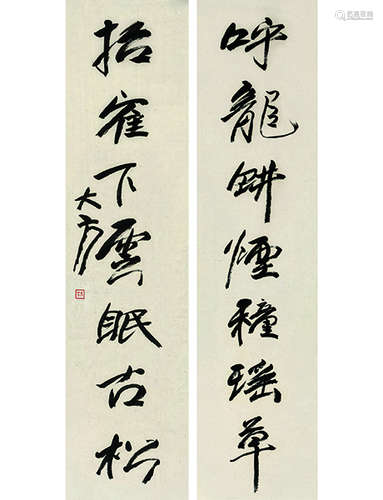 呼龍畊煙種瑶草
招寉下雲眠古松
大方